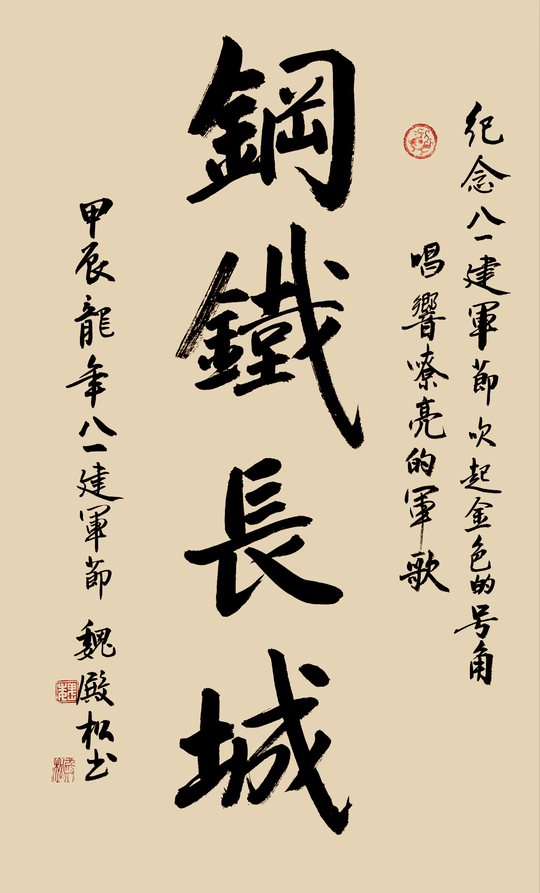 纪念八一建軍節吹起金色的号角
唱響嘹亮的軍歌
鋼鐵長城
甲辰龍年八一建軍節 魏殿松书